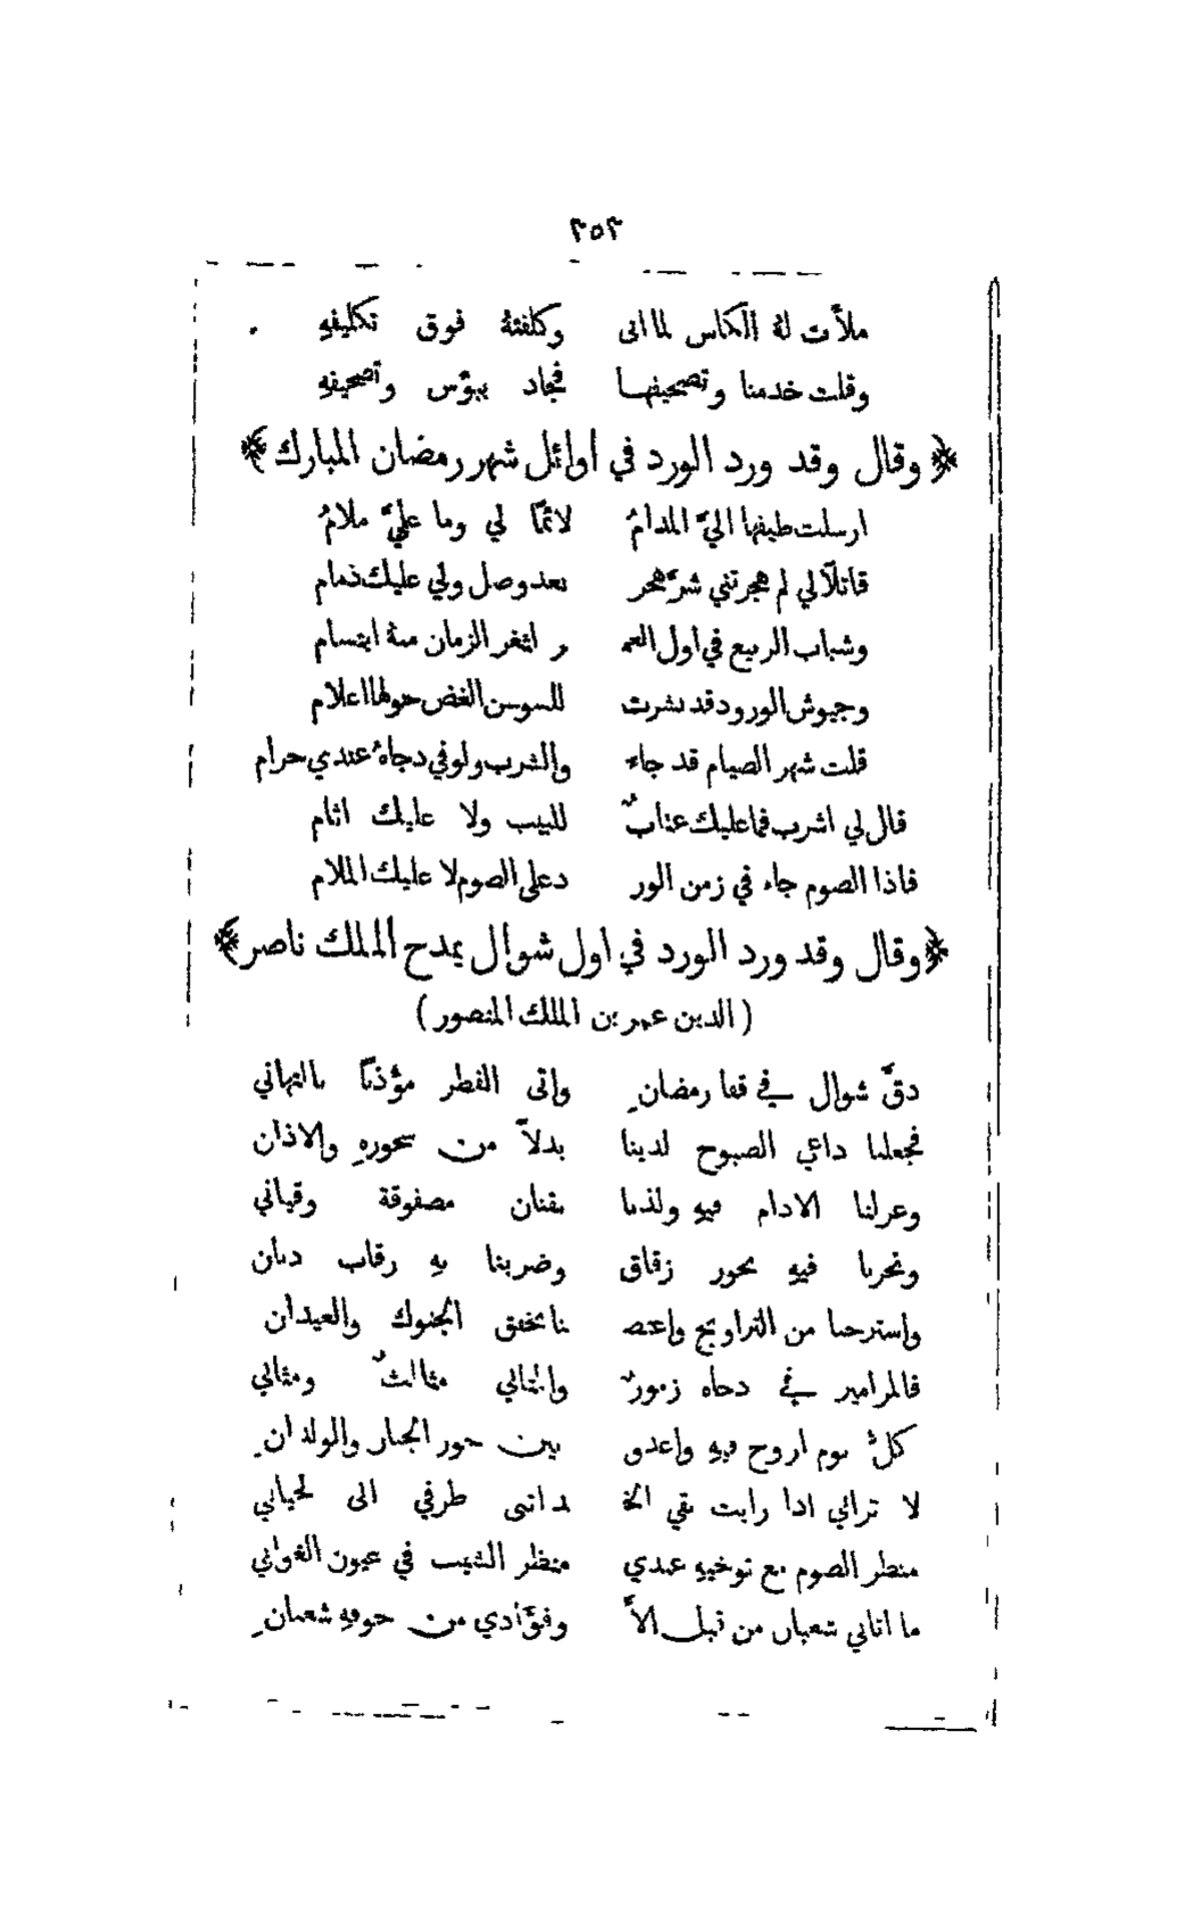 ٣٥٣
ملأت لهُ الكاس لما اتى وكلفتهُ فوق تكليفهِ
وقلت خدمنا وتصحيفها فجاد ببؤس وتصحيفهِ
﴿وقال وقد ورد الورد في اوائل شهر رمضان المبارك﴾
ارسلت طيفها اليَّ المدامُ لائمًا لي وما عليَّ ملامُ
قائلاً لي لم هجرتني شرَّ هجر بعد وصل ولي عليك ذمام
وشباب الربيع في اول العمـ ـر لثغر الزمان منهُ ابتسام
وجيوش الورود قد نشرت للسوسن الغض حولها اعلام
قلت شهر الصيام قد جاء والشرب ولو في دجاهُ عندي حرام
قال لي اشرب فما عليك عتابٌ للبيب ولا عليك اثام
فاذا الصوم جاء في زمن الور د على الصوم لا عليك الملام
﴿وقال وقد ورد الورد في اول شوال يمدح الملك ناصر﴾
(الدين عمر بن الملك المنصور)
دقَّ شوال في قفا رمضانِ واتى الفطر مؤذنًا بالتهاني
فجعلنا داعي الصبوح لدينا بدلاً من سحورهِ والاذان
وعزلنا الادام فيهِ ولذنا بقنان مصفوفة وقياني
ونحرنا فيهِ نحور زقاق وضربنا بهِ رقاب دنان
واسترحنا من التراويح واعتضـ نا بخفق الجنوك والعيدان
فالمزامير في دجاه زمورٌ والمثاني مثالثٌ ومثاني
كلَّ يوم اروح فيهِ واغدو بين حور الجنان والولدانِ
لا تراني اذا رايت نقي الخـ ـد اثنى طرفي الى لحياني
منظر الصوم مع توخيهِ عندي منظر الشيب في عيون الغواني
ما اتاني شعبان من قبل الاَّ وفؤادي من خوفهِ شعبانِ